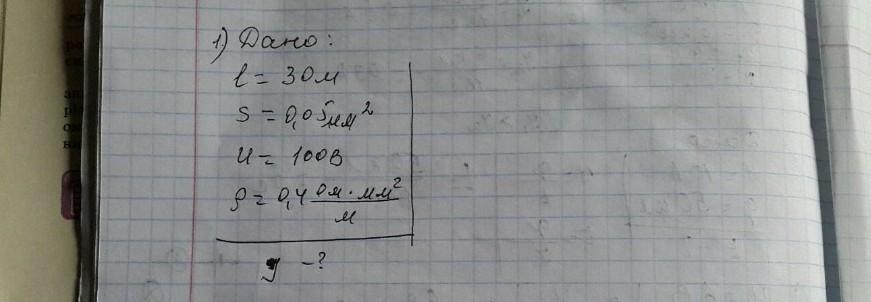 1) Дано:
l = 30м
S = 0,05мм²
U = 100В
ρ = 0,4 Ом · мм²
м
J - ?